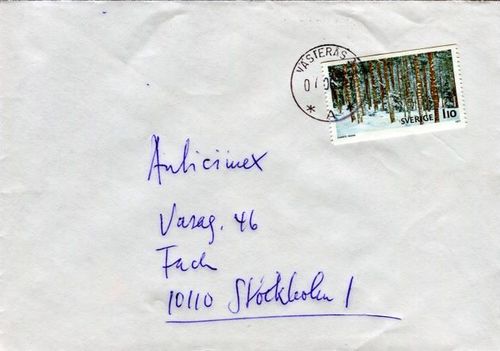 VÄSTERÅS
07 0
* A *
SVERIGE 110
Anticimex
Vasag. 46
Fach
10110 Stockholm 1